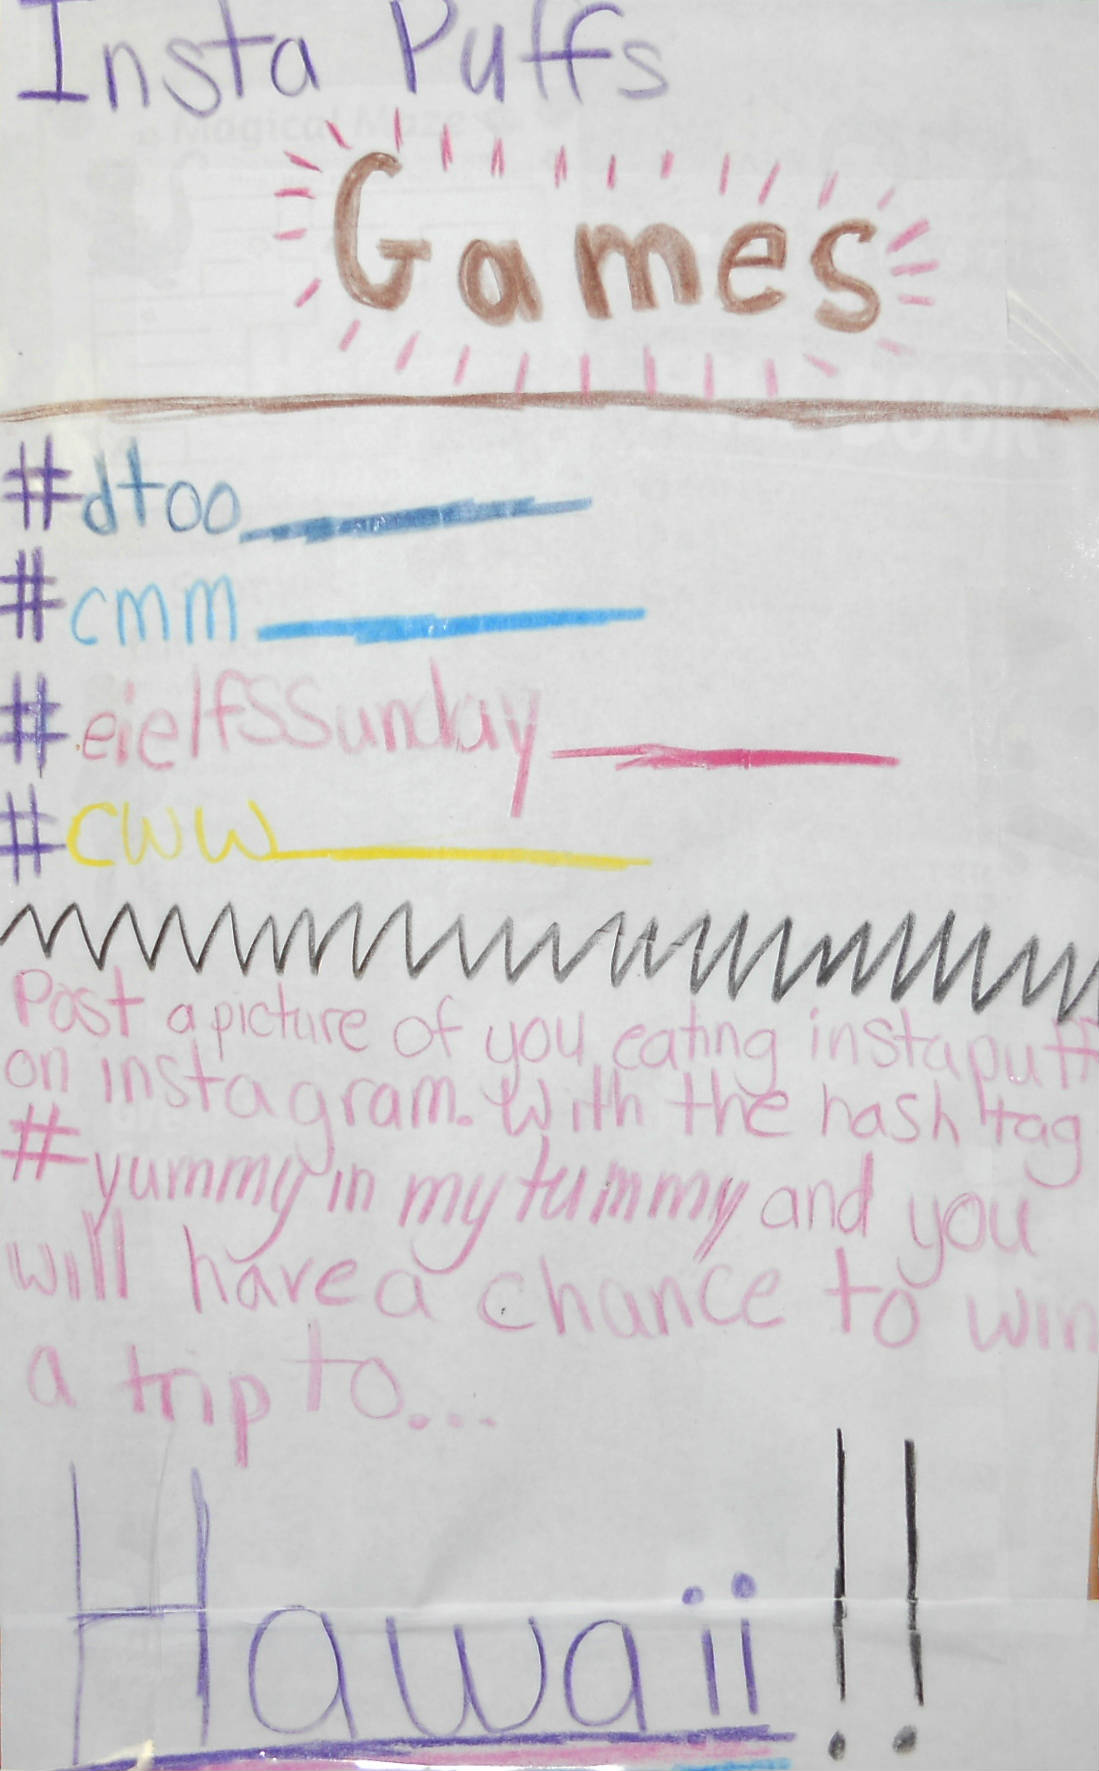 Insta Puffs
Games
#dtoo
#cmm
#eielfssunday
#cww
Post a picture of you eating instapuff
on instagram. With the hash tag
#yummy in my tummy and you
will have a chance to win
a trip to...
Hawaii!!